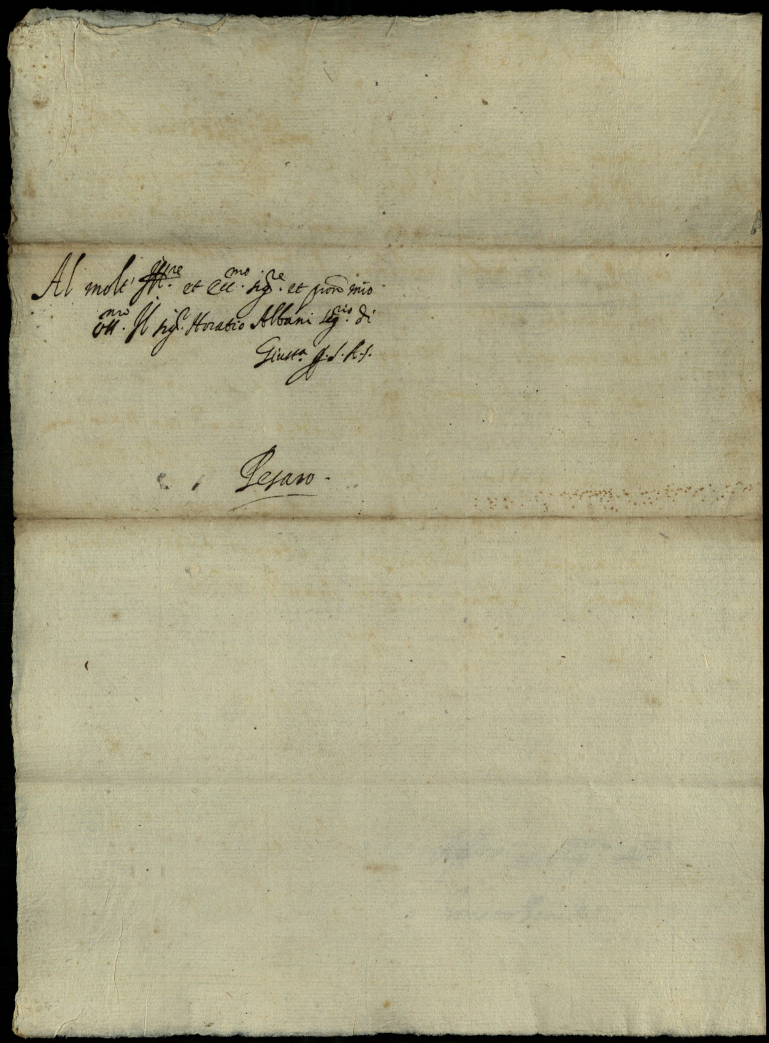 Al molt' Ill.re et Ecc.mo sig.re et pron mio
oss.mo Il sig.r Horatio Albani seg.rio di
Giust.a
Pesaro.